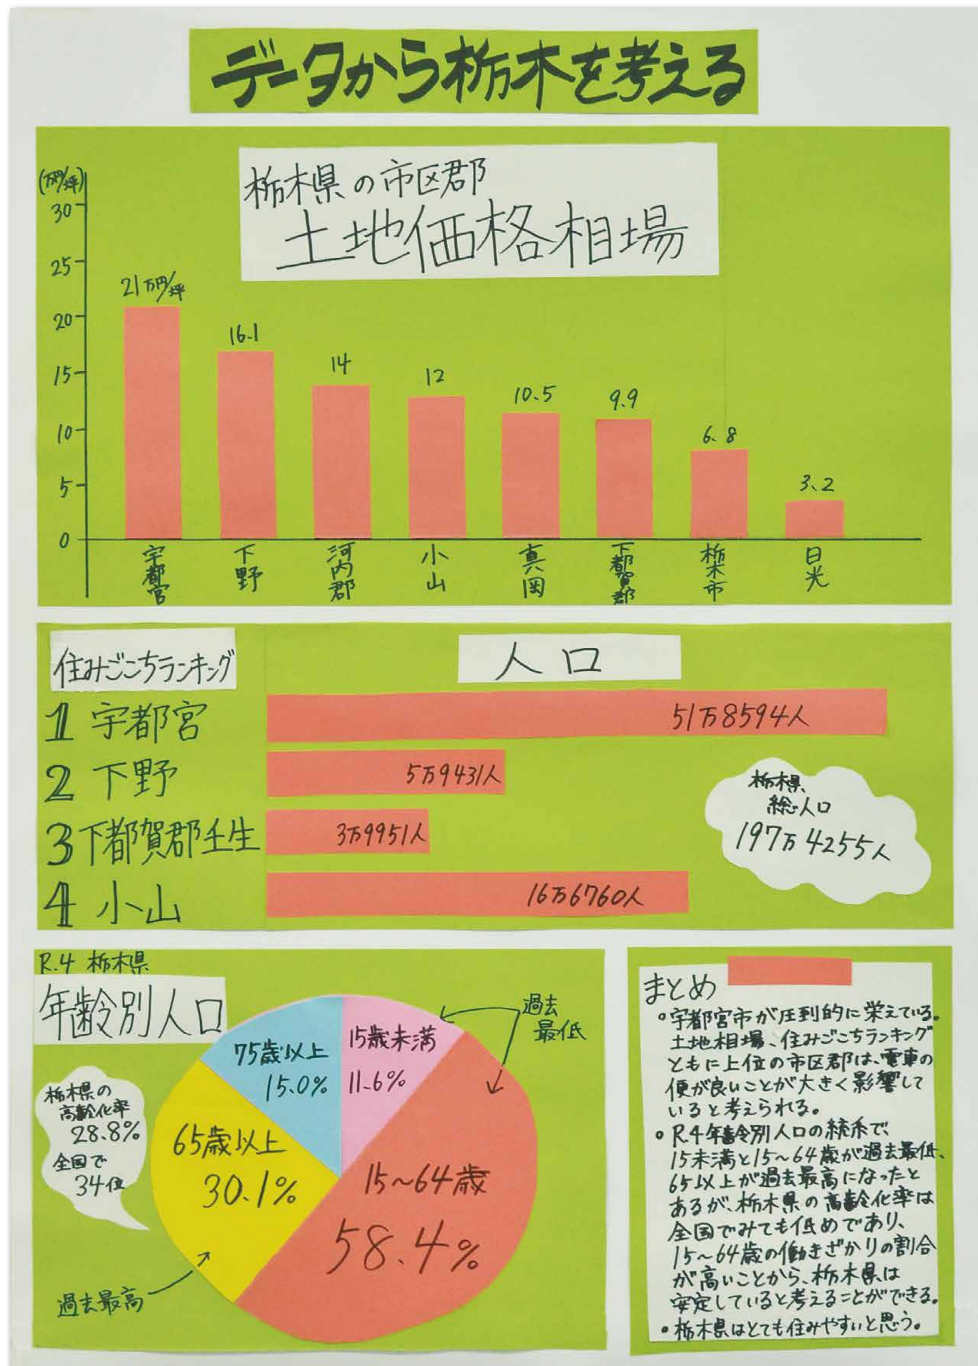 データから栃木を考える
栃木県の市区郡
土地価格相場
(万円/坪)
30
25
20
15
10
5
0
21万円/坪
16.1
14
12
10.5
9.9
6.8
3.2
宇都宮
下野
河内郡
小山
真岡
下都賀郡
栃木市
日光
住みごこちランキング
人口
1 宇都宮
51万8594人
2 下野
5万9431人
3 下都賀郡壬生
3万9951人
4 小山
16万6760人
栃木県
総人口
197万4255人
R.4 栃木県
年齢別人口
過去
最低
75歳以上
15.0%
15歳未満
11.6%
栃木県の
高齢化率
28.8%
全国で
34位
65歳以上
30.1%
15~64歳
58.4%
過去最高
まとめ
・宇都宮市が圧倒的に栄えている。
土地相場、住みごこちランキング
ともに上位の市区郡は、電車の
便が良いことが大きく影響して
いると考えられる。
・R.4年齢別人口の統系で、
15未満と15~64歳が過去最低、
65以上が過去最高になったと
あるが、栃木県の高齢化率は
全国でみても低めであり、
15~64歳の働きざかりの割合
が高いことから、栃木県は
安定していると考えることができる。
・栃木県はとても住みやすいと思う。